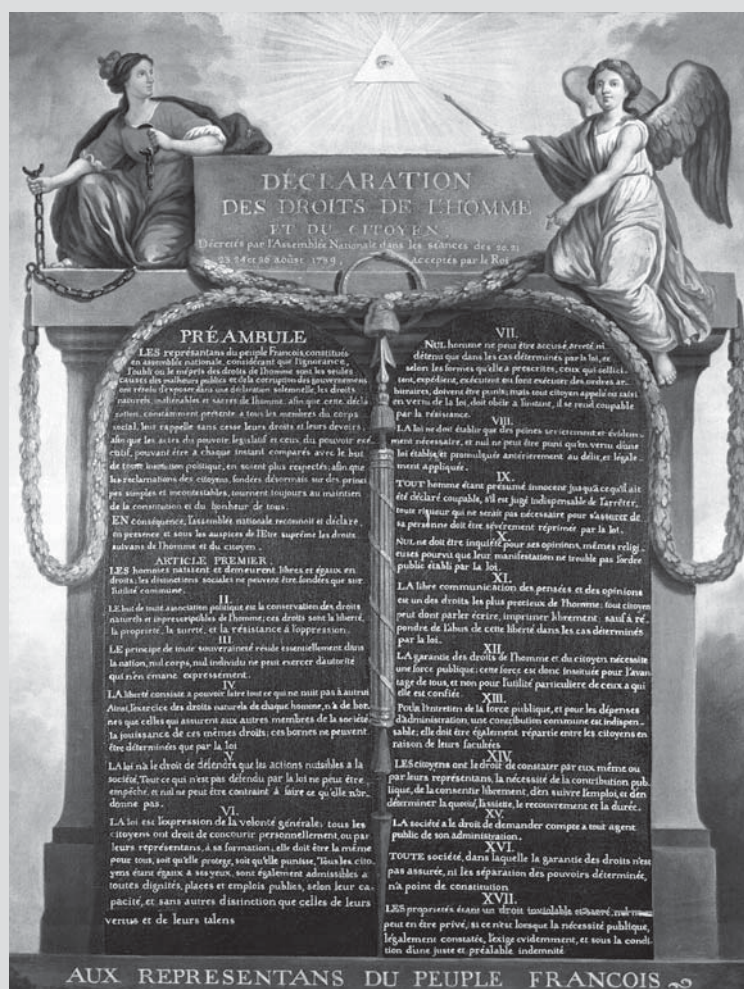 DÉCLARATION
DES DROITS DE L'HOMME
ET DU CITOYEN,
Décretés par l'Assemblée Nationale dans les séances des 20, 21
23, 24 et 26 aoûst 1789, acceptés par le Roi
PRÉAMBULE
LES représentans du peuple François, constitués
en assemblée nationale, considérant que l'ignorance,
l'oubli ou le mépris des droits de l'homme sont les seules
causes des malheurs publics et de la corruption des gouvernemens
ont résolu d'exposer dans une déclaration solemnelle, les droits
naturels, inaliénables et sacrés de l'homme; afin que cette décla
ration, constamment présente a tous les membres du corps
social, leur rappelle sans cesse leurs droits et leurs devoirs;
afin que les actes du pouvoir législatif et ceux du pouvoir exé
cutif, pouvant être à chaque instant comparés avec le but
de toute institution politique, en soient plus respectés; afin que
les réclamations des citoyens, fondées désormais sur des princi
pes simples et incontestables, tournent toujours au maintien
de la constitution et du bonheur de tous.
EN conséquence, l'assemblée nationale reconnoit et déclare
en présence et sous les auspices de l'Etre suprême les droits
suivans de l'homme et du citoyen.
ARTICLE PREMIER.
LES hommes naissent et demeurent libres et égaux en
droits; les distinctions sociales ne peuvent être fondées que sur
l'utilité commune.
II.
LE but de toute association politique est la conservation des droits
naturels et imprescriptibles de l'homme; ces droits sont la liberté,
la propriété, la sureté, et la résistance à l'oppression.
III.
LE principe de toute souveraineté réside essentiellement dans
la nation, nul corps, nul individu ne peut exercer d'autorité
qui n'en émane expressement.
IV.
LA liberté consiste a pouvoir faire tout ce qui ne nuit pas à autrui
Ainsi, l'exercice des droits naturels de chaque homme, n'a de bor-
nes que celles qui assurent aux autres membres de la société
la jouissance de ces mêmes droits; ces bornes ne peuvent
être déterminées que par la loi
V.
LA loi n'a le droit de défendre que les actions nuisibles a la
société. Tout ce qui n'est pas défendu par la loi ne peut être
empêché, et nul ne peut être contraint à faire ce qu'elle n'or-
donne pas.
VI.
LA loi est l'expression de la volonté générale; tous les
citoyens ont droit de concourir personnellement, ou par
leurs représentans, à sa formation; elle doit être la même
pour tous, soit qu'elle protege, soit qu'elle punisse, Tous les cito
yens étant égaux a ses yeux, sont également admissibles a
toutes dignités, places et emplois publics, selon leur ca-
pacité, et sans autres distinction que celles de leurs
vertus et de leurs talens
VII.
NUL homme ne peut être accusé, arreté ni
détenu que dans les cas déterminés par la loi, et
selon les formes qu'elle a prescrites, ceux qui sollici-
tent, expédient, exécutent ou font exécuter des ordres ar-
bitraires, doivent être punis; mais tout citoyen appelé ou saisi
en vertu de la loi, doit obéir a l'instant, il se rend coupable
par la résistance.
VIII.
LA loi ne doit établir que des peines strictement et évidem-
ment nécessaire, et nul ne peut être puni qu'en vertu d'une
loi établie et promulguée antérieurement au délit, et légale-
ment appliquée.
IX.
TOUT homme étant présumé innocent jusqu'a ce qu'il ait
été déclaré coupable, s'il est jugé indispensable de l'arrêter,
toute rigueur qui ne serait pas nécessaire pour s'assurer de
sa personne doit être sévèrement réprimée par la loi.
X.
NUL ne doit être inquiété pour ses opinions, mêmes religi-
euses pourvu que leur manifestation ne trouble pas l'ordre
public établi par la loi.
XI.
LA libre communication des pensées et des opinions
est un des droits les plus precieux de l'homme; tout citoyen
peut dont parler écrire, imprimer librement; sauf à ré-
pondre de l'abus de cette liberté dans les cas déterminés
par la loi.
XII.
LA garantie des droits de l'homme et du citoyen nécessite
une force publique; cette force est donc instituée pour l'avan-
tage de tous, et non pour l'utilité particuliere de ceux a qui
elle est confiée.
XIII.
Pour l'entretien de la force publique, et pour les dépenses
d'administration, une contribution commune est indispen-
sable; elle doit être également répartie entre les citoyens en
raison de leurs facultées
XIV.
LES citoyens ont le droit de constater par eux même ou
par leurs représentans, la nécessité de la contribution pub-
lique, de la consentir librement, d'en suivre l'emploi, et d'en
déterminer la quotité, l'assiette, le recouvrement et la durée.
XV.
LA société a le droit de demander compte a tout agent
public de son administration.
XVI.
TOUTE société, dans laquelle la garantie des droits n'est
pas assurée, ni les séparation des pouvoirs déterminée,
n'a point de constitution
XVII.
LES proprietés étant un droit inviolable et sacré, nul ne
peut en être privé, si ce n'est lorsque la nécessité publique,
légalement constatée, l'exige evidemment, et sous la condi-
tion d'une juste et préalable indemnité
AUX REPRESENTANS DU PEUPLE FRANCOIS